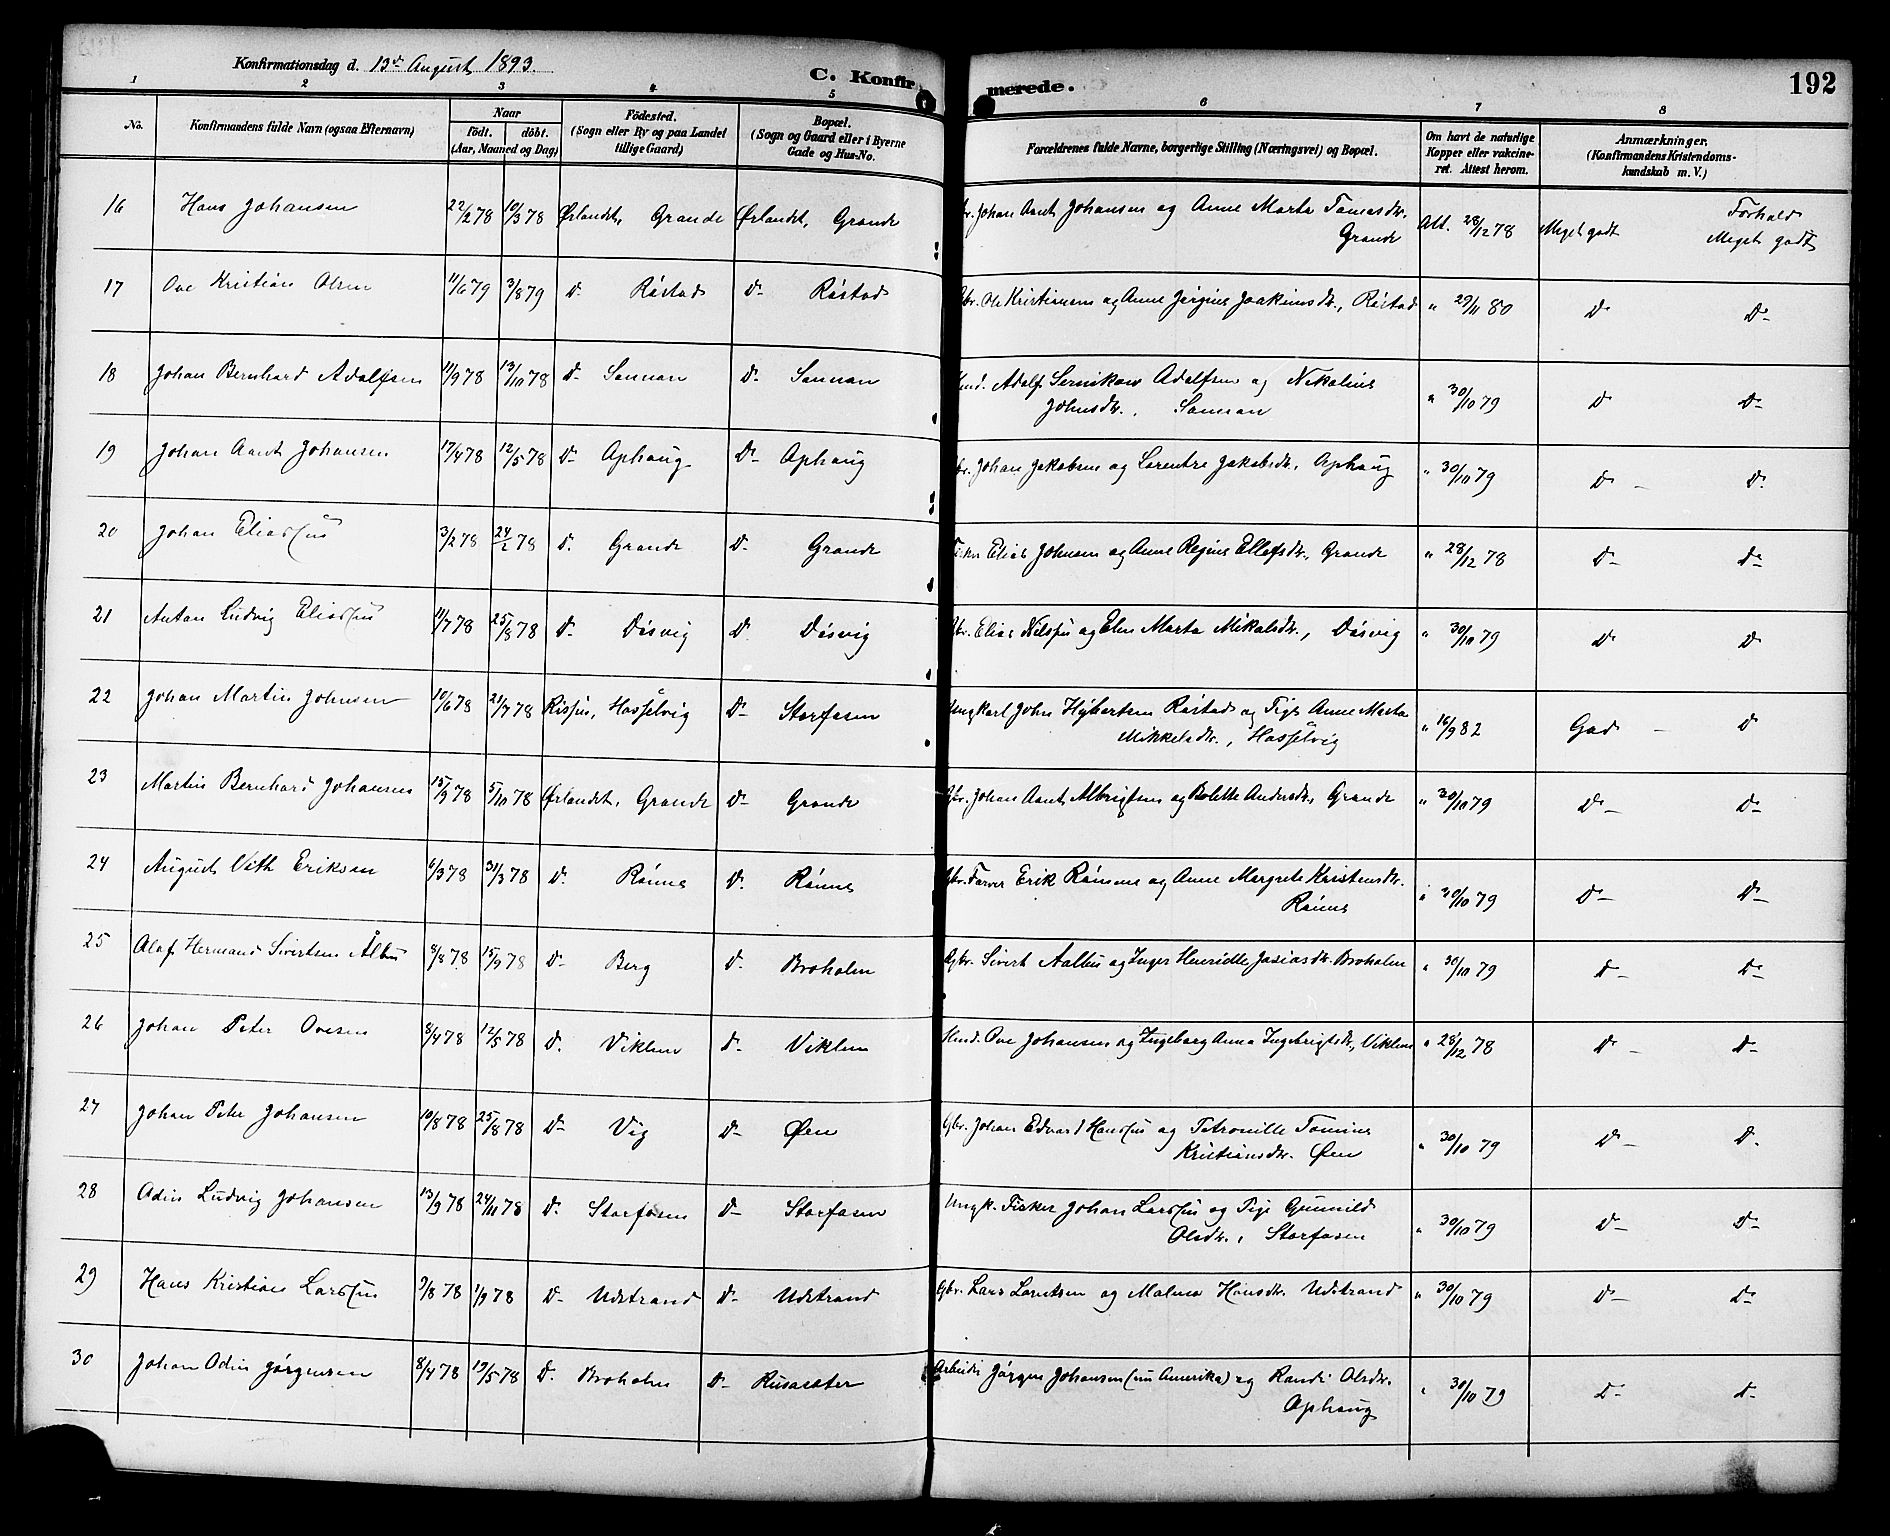 Konfirmationsdag d. 13de August 1893.
C. Konfirmerede.
192
1 2 3 4 5 6 7 8
No. Konfirmandens fulde Navn (ogsaa Efternavn) Naar født. døbt. (Aar, Maaned og Dag) Fødested. (Sogn eller By og paa Landet tillige Gaard) Bopæl. (Sogn og Gaard eller i Byerne Gade og Hus-No. Forældrenes fulde Navne, borgerlige Stilling (Næringsvei) og Bopæl. Om havt de naturlige Kopper eller vakcineret. Attest herom. Anmærkninger. (Konfirmandens Kristendomskundskab m. V.)
16 Hans Johansen 22/2 78 10/3 78 Ørlandet, Grande Ørlandet, Grande Johan Arnt Johansen og Anne Marta Tomasdtr. Att. 28/12 78 Meget godt Forhold
Grande Meget godt
17 Ove Kristian Olsen 11/6 79 3/8 79 D- Røstad D- Røstad Gbr. Ole Kristiansen og Anne Jørgine Joakimsdtr., Røstad " 29/11 80 D- D-
18 Johan Bernhard Adolfsen 11/9 78 13/10 78 D- Sannan D- Sannan Adolf Adolfsen og Nikoline " 30/10 79 D- D-
Johnsdtr., Sannan
19 Johan Arnt Johansen 17/4 78 12/5 78 D- Ophaug D- Ophaug Gbr. Johan Jakobsen og Lorentse Jakobsdtr. Ophaug " 30/10 79 D- D-
20 Johan Eliassen 3/2 78 24/2 78 D- Grande D- Grande Elias Johnsen og Anne Regine Ellefsdtr., Grande " 28/12 78 D- D-
21 Anton Ludvig Eliassen 11/7 78 25/8 78 D- Døsvig D- Døsvig Gbr. Elias Nilssen og Elen Marta Mikalsdtr., Døsvig " 30/10 79 D- D-
22 Johan Martin Johnsen 10/6 78 21/7 78 Rissen, Hasselvig D- Storfosen Ungkarl John Hybertsen Røstad og Pige Anne Marta " 16/9 82 God D-
Mikkelsdtr., Hasselvig
23 Martin Bernhard Johansen 15/9 78 5/10 78 Ørlandet, Grande D- Grande Gbr. Johan Arnt Albrigtsen og Bolette Andersdtr., Grande " 30/10 79 D- D-
24 August Vith Eriksen 6/3 78 31/3 78 D- Rønne D- Rønne Gbr. Farver Erik Rønne og Anne Margrete Kristensdtr. " 30/10 79 D- D-
Rønne
25 Olaf Hermand Sivertsen Albu 8/8 78 15/9 78 D- Berg D- Broholm Gbr. Sivert Aalbu og Inger Henridtte Josiasdtr. Broholm " 30/10 79 D- D-
26 Johan Peter Ovesen 8/4 78 12/5 78 D- Viklem D- Viklem Hmd. Ove Johansen og Ingeborg Anna Ingebrigtsdtr., Viklem " 28/12 78 D- D-
27 Johan Peter Johansen 10/8 78 25/8 78 D- Vig D- Øen Gbr. Johan Edvard Hanssen og Petronille Tomine " 30/10 79 D- D-
Kristiansdtr. Øen
28 Odin Ludvig Johansen 13/9 78 24/11 78 D- Storfosen D- Storfosen Ungk. Fisker Johan Larssen og Pige Gunnild " 30/10 79 D- D-
Olsdtr., Storfosen
29 Hans Kristian Larssen 9/8 78 1/9 78 D- Udstrand D- Udstrand Gbr. Lars Lorntsen og Malena Hansdtr. Udstrand " 30/10 79 D- D-
30 Johan Odin Jørgensen 8/4 78 19/5 78 D- Broholm D- Rusasæter Arbeider Jørgen Johansen (nu Amerika) og Randi Olsdtr. " 30/10 79 D- D-
Ophaug